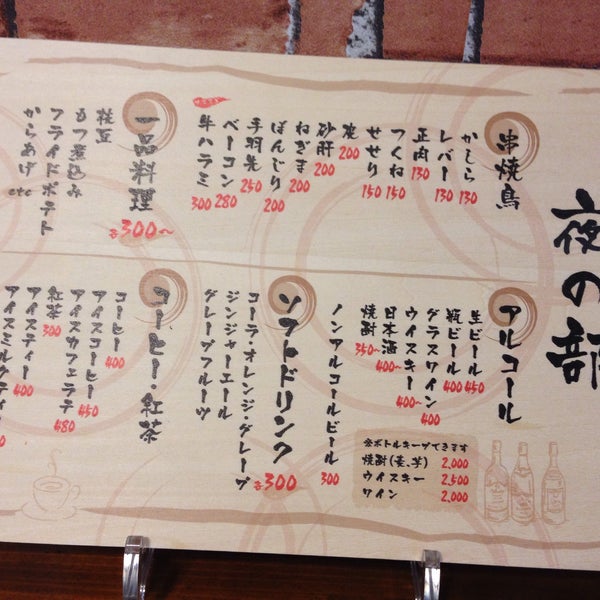 夜の部
串焼鳥
かしら 130
レバー 130
正肉 130
つくね 150
せせり 150
皮 200
砂肝 200
ねぎま 200
ぼんじり 200
手羽先 250
ベーコン 280
牛ハラミ 300
一品料理
各300~
枝豆
もつ煮込み
フライドポテト
からあげ etc
アルコール
生ビール 450
瓶ビール 400
グラスワイン 400
ウイスキー 400~
日本酒 400~
焼酎 350~
ノンアルコールビール 300
※ボトルキープできます
焼酎(麦、芋) 2,000
ウイスキー 2,500
ワイン 2,000
ソフトドリンク
各300
コーラ・オレンジ・グレープ
ジンジャーエール
グレープフルーツ
コーヒー・紅茶
コーヒー 400
アイスコーヒー 450
アイスカフェラテ 480
紅茶 300
アイスティー 400
アイスミルクティー 400